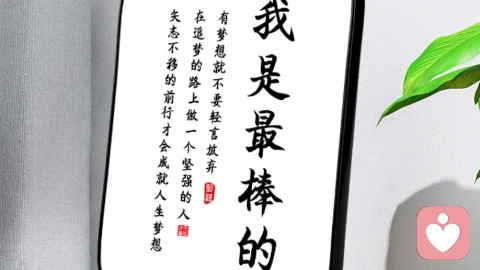 我是最棒的
有梦想就不要轻言放弃
在追梦的路上做一个坚强的人
矢志不移的前行才会成就人生梦想